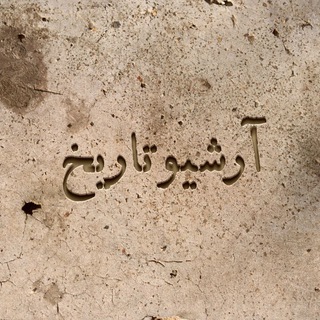 آرشیو تاریخ